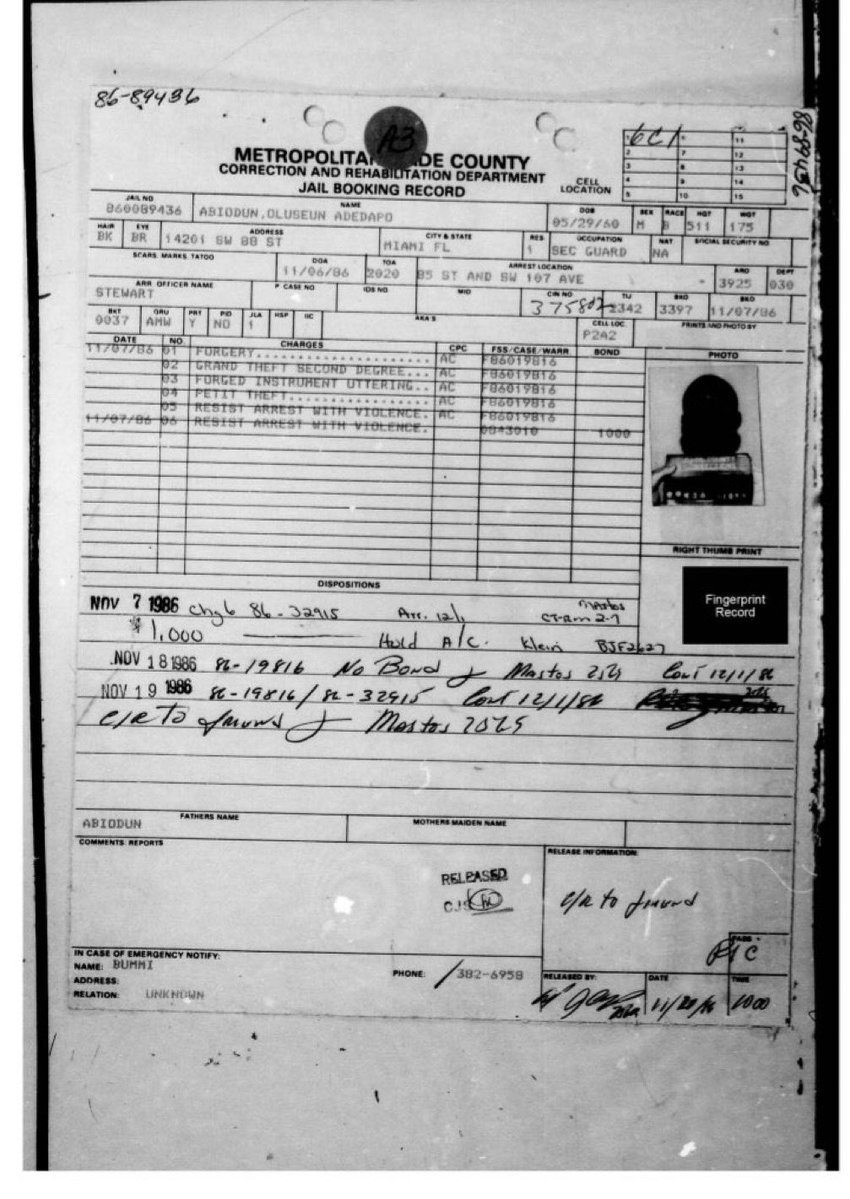 86-89436
A3
86-89436
METROPOLITA DE COUNTY
CORRECTION AND REHABILITATION DEPARTMENT
JAIL BOOKING RECORD
CELL LOCATION
1 6C1 6 11
2 7 12
3 8 13
4 9 14
5 10 15
JAIL NO. NAME DOB SEX RACE HGT WGT
860089436 ABIODUN,OLUSEUN ADEDAPO 05/29/60 M B 511 175
HAIR EYE ADDRESS CITY & STATE RES OCCUPATION NAT SOCIAL SECURITY NO
BK BR 14201 SW 88 ST MIAMI FL 1 SEC GUARD NA
SCARS, MARKS, TATOO DOA TOA ARREST LOCATION ARO DEPT
11/06/86 2020 85 ST AND SW 107 AVE - 3925 030
ARR OFFICER NAME P CASE NO IDS NO MID CIN NO TIJ BKO BKD
STEWART 2342 3397 11/07/86
BKT GRU PRT PID JLA HSP IIC AKA S CELL LOC PRINTS AND PHOTO BY
0037 AMW Y NO 1 P2A2
DATE NO. CHARGES CPC FSS/CASE/WARR BOND PHOTO
11/07/86 01 FORGERY...................... AC F86019816
02 GRAND THEFT SECOND DEGREE... AC F86019816
03 FORGED INSTRUMENT UTTERING.. AC F86019816
04 PETIT THEFT.................. AC F86019816
05 RESIST ARREST WITH VIOLENCE. AC F86019816
11/07/86 06 RESIST ARREST WITH VIOLENCE. 0843010 1000
RIGHT THUMB PRINT
Fingerprint
Record
DISPOSITIONS
NOV 7 1986 Chg 6 86-32915 Arr. 12/1 Mastos
CT-Rm 2-7
$1,000 Hold A/C. Klein BJF2627
NOV 18 1986 86-19816 No Bond Mastos Cont 12/1/86
NOV 19 1986 86-19816/86-32915 Cont 12/1/86
C/R To Mastos
FATHERS NAME MOTHERS MAIDEN NAME
ABIODUN
COMMENTS: REPORTS
RELEASED
RELEASE INFORMATION:
C/R to
IN CASE OF EMERGENCY NOTIFY:
NAME: BUMMI
ADDRESS:
RELATION: UNKNOWN
PHONE: 382-6958
RELEASED BY: DATE TIME
11/20/86 1000